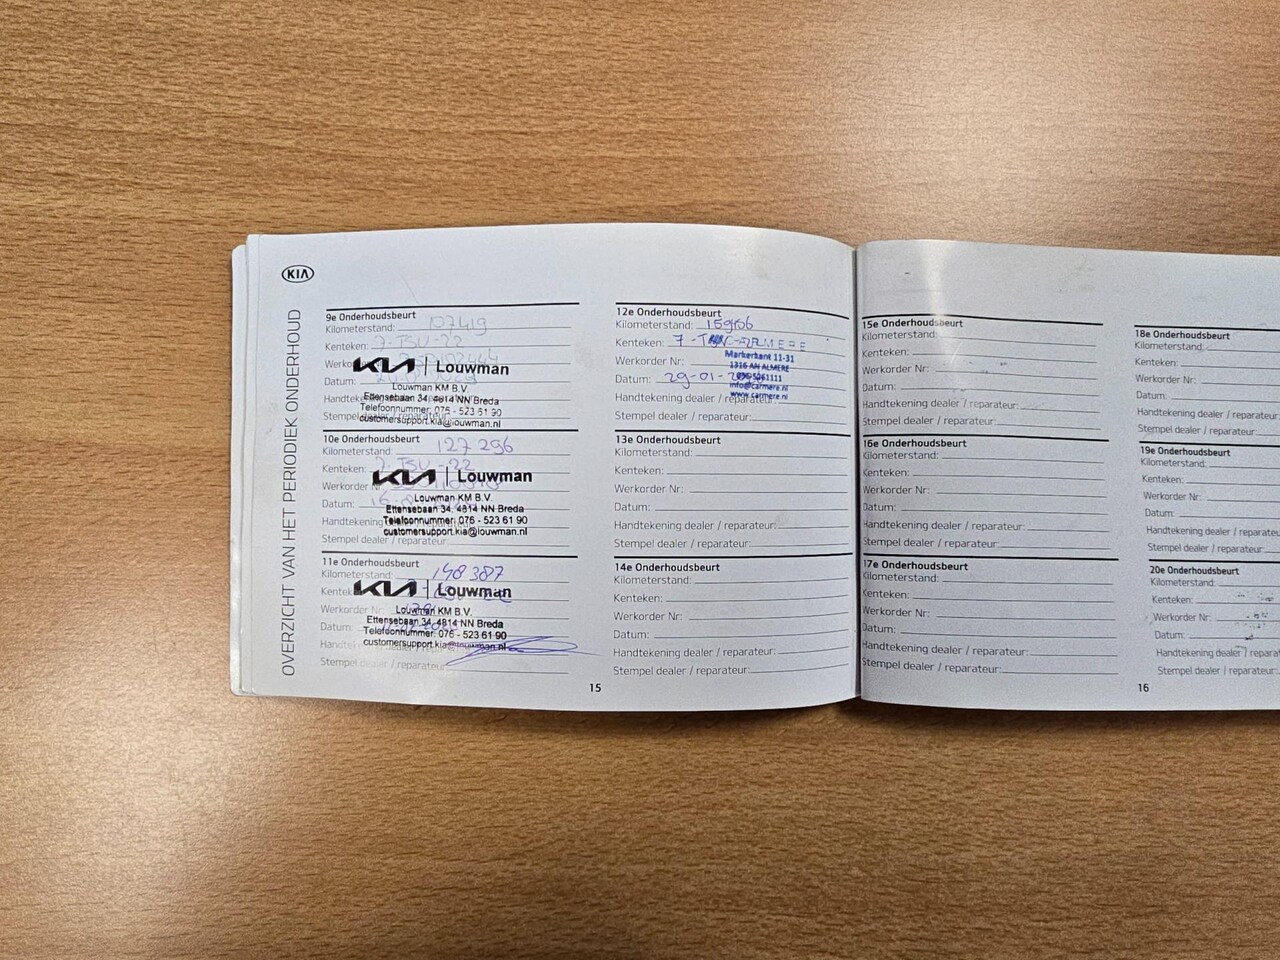 KIA
OVERZICHT VAN HET PERIODIEK ONDERHOUD
9e Onderhoudsbeurt
Kilometerstand: 107419
Kenteken: 7-TSU-22
Werkorder
KIA | Louwman
Datum:
Louwman KM B.V.
Ettensebaan 34, 4814 NN Breda
Telefoonnummer: 076 - 523 61 90
customersupport.kia@louwman.nl
Stempel dealer / reparateur:
10e Onderhoudsbeurt
Kilometerstand: 127 296
Kenteken: 7-TSU-22
KIA | Louwman
Werkorder Nr:
Louwman KM B.V.
Datum: 16
Ettensebaan 34, 4814 NN Breda
Telefoonnummer: 076 - 523 61 90
Handtekening
customersupport.kia@louwman.nl
Stempel dealer / reparateur:
11e Onderhoudsbeurt
Kilometerstand: 148 387
KIA | Louwman
Werkorder Nr:
Louwman KM B.V.
Ettensebaan 34, 4814 NN Breda
Datum:
Telefoonnummer: 076 - 523 61 90
customersupport.kia@louwman.nl
Stempel dealer / reparateur:
12e Onderhoudsbeurt
Kilometerstand:
Kenteken: 7-
Werkorder Nr:
Markerkant 11-31
1316 AN ALMERE
Datum: 29-01-
info@carmere.nl
www.carmere.nl
Handtekening dealer / reparateur:
Stempel dealer / reparateur:
13e Onderhoudsbeurt
Kilometerstand:
Kenteken:
Werkorder Nr:
Datum:
Handtekening dealer / reparateur:
Stempel dealer / reparateur:
14e Onderhoudsbeurt
Kilometerstand:
Kenteken:
Werkorder Nr:
Datum:
Handtekening dealer / reparateur:
Stempel dealer / reparateur:
15
15e Onderhoudsbeurt
Kilometerstand:
Kenteken:
Werkorder Nr:
Datum:
Handtekening dealer / reparateur:
Stempel dealer / reparateur:
16e Onderhoudsbeurt
Kilometerstand:
Kenteken:
Werkorder Nr:
Datum:
Handtekening dealer / reparateur:
Stempel dealer / reparateur:
17e Onderhoudsbeurt
Kilometerstand:
Kenteken:
Werkorder Nr:
Datum:
Handtekening dealer / reparateur:
Stempel dealer / reparateur:
18e Onderhoudsbeurt
Kilometerstand:
Kenteken:
Werkorder Nr:
Datum:
Handtekening dealer / reparateur
Stempel dealer / reparateur:
19e Onderhoudsbeurt
Kilometerstand:
Kenteken:
Werkorder Nr:
Datum:
Handtekening dealer / reparateur
Stempel dealer / reparateur:
20e Onderhoudsbeurt
Kilometerstand:
Kenteken:
Werkorder Nr:
Datum:
Handtekening dealer / reparateur
Stempel dealer / reparateur:
16